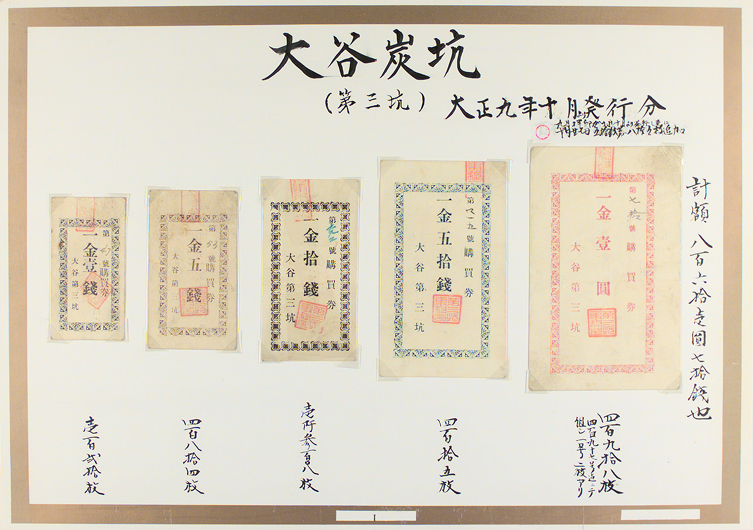 大谷炭坑
(第三坑)
大正九年十月発行分
計額八百六拾壱圓七拾銭也
第 號購買券
一金壹圓
大谷第三坑
第四一九號購買券
一金五拾錢
大谷第三坑
第 號購買券
一金拾錢
大谷第三坑
第 號購買券
一金五錢
大谷第 坑
第 號購買券
一金壹錢
大谷第三坑
四百九拾八枚
四百九十七号迄ニテ
但シ一号二枚アリ
四百拾五枚
壱阡参百八枚
四百八拾四枚
壱百弐拾枚